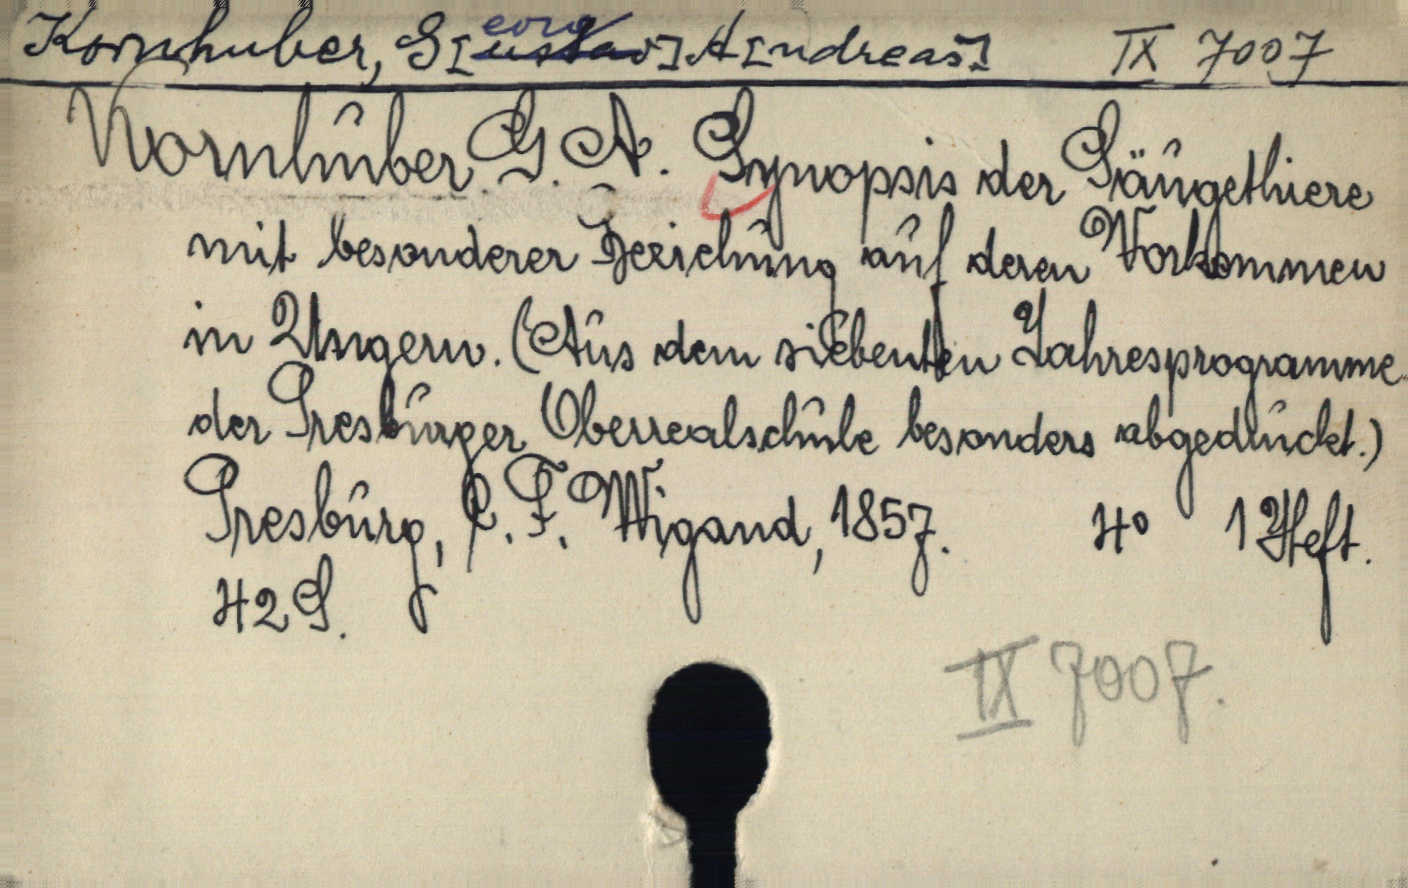 Kornhuber, G[eorg] A[ndreas] IX 7007
Kornhuber G. A. Synopsis der Säugethiere
mit besonderer Beziehung auf deren Vorkommen
in Ungern. (Aus dem siebenten Jahresprogramme
der Presburger Oberrealschule besonders abgedruckt.)
Presburg, C. F. Wigand, 1857. 4° 1 Heft.
42 S.
IX 7007.